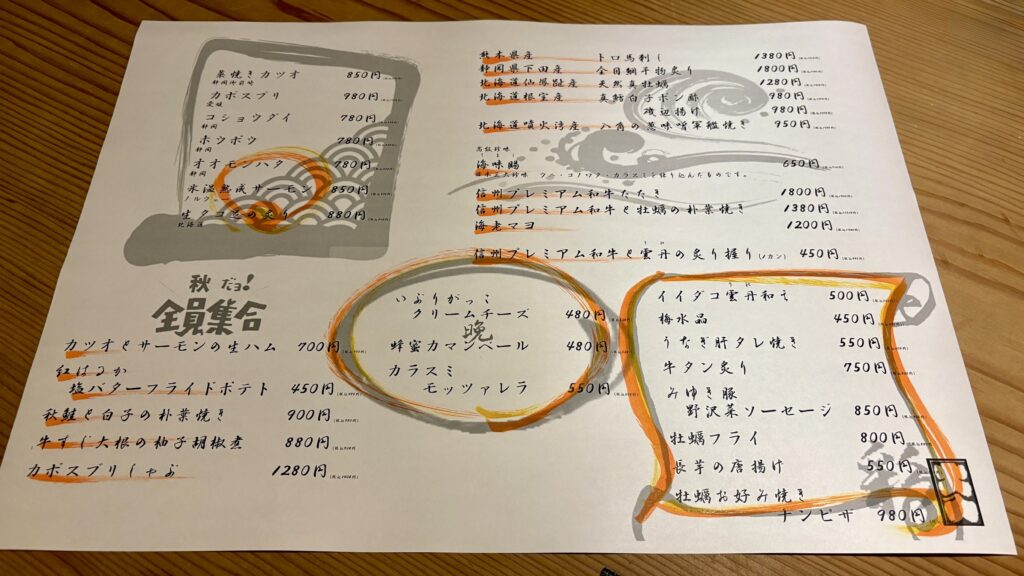 藁焼きカツオ 850円
静岡御前崎
カボスブリ 980円
愛媛
コショウダイ 780円
静岡
ホウボウ 780円
静岡
オオモンハタ 780円
静岡
氷温熟成サーモン 850円
ノルウェー
生タコ芯の炙り 880円
北海道
秋だョ!
全員集合
カツオとサーモンの生ハム 700円
紅はるか
塩バターフライドポテト 450円
秋鮭と白子の朴葉焼き 900円
牛すじ大根の柚子胡椒煮 880円
カボスブリしゃぶ 1280円
熊本県産 トロ馬刺し 1380円
静岡県下田産 金目鯛干物炙り 1800円
北海道仙鳳趾産 天然真牡蠣 1280円
北海道根室産 真鱈白子ポン酢 980円
磯辺揚げ 980円
北海道噴火湾産 八角の葱味噌軍艦焼き 950円
高級珍味
海味鵬 650円
信州プレミアム和牛たたき 1800円
信州プレミアム和牛と牡蠣の朴葉焼き 1380円
海老マヨ 1200円
信州プレミアム和牛と雲丹の炙り握り(ノカン) 450円
いぶりがっこ
クリームチーズ 480円
晩
蜂蜜カマンベール 480円
カラスミ
モッツァレラ 550円
イイダコ雲丹和え 500円
梅水晶 450円
うなぎ肝タレ焼き 550円
牛タン炙り 750円
みゆき豚
野沢菜ソーセージ 850円
牡蠣フライ 800円
長芋の唐揚げ 550円
牡蠣お好み焼き
ナンピザ 980円